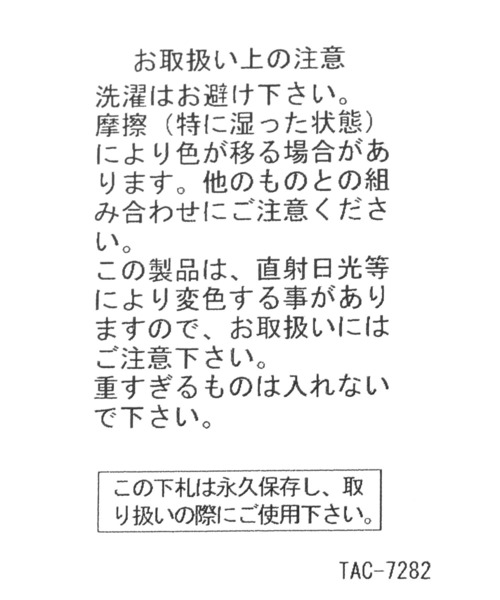 お取扱い上の注意
洗濯はお避け下さい。
摩擦（特に湿った状態）
により色が移る場合があ
ります。他のものとの組
み合わせにご注意くださ
い。
この製品は、直射日光等
により変色する事があり
ますので、お取扱いには
ご注意下さい。
重すぎるものは入れない
で下さい。
この下札は永久保存し、取
り扱いの際にご使用下さい。
TAC-7282